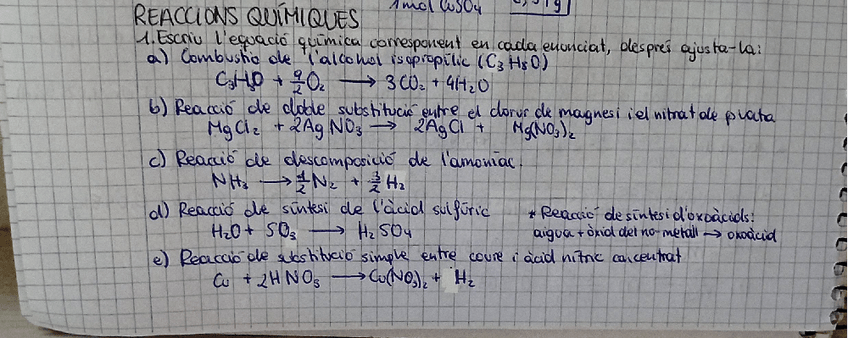 1mol CuSO4
REACCIONS QUÍMIQUES
1. Escriu l'equació química corresponent en cada enunciat, després ajusta-la:
a) Combustió de l'alcohol isopropílic (C3H8O)
C3H8O + 9/2 O2 → 3CO2 + 4H2O
b) Reacció de doble substitució entre el clorur de magnesi i el nitrat de plata
MgCl2 + 2AgNO3 → 2AgCl + Mg(NO3)2
c) Reacció de descomposició de l'amoníac.
NH3 → 1/2 N2 + 3/2 H2
d) Reacció de síntesi de l'àcid sulfúric
H2O + SO3 → H2SO4
* Reacció de síntesi d'oxoàcids:
aigua + òxid del no-metall → oxoàcid
e) Reacció de substitució simple entre coure i àcid nítric concentrat
Cu + 2HNO3 → Cu(NO3)2 + H2